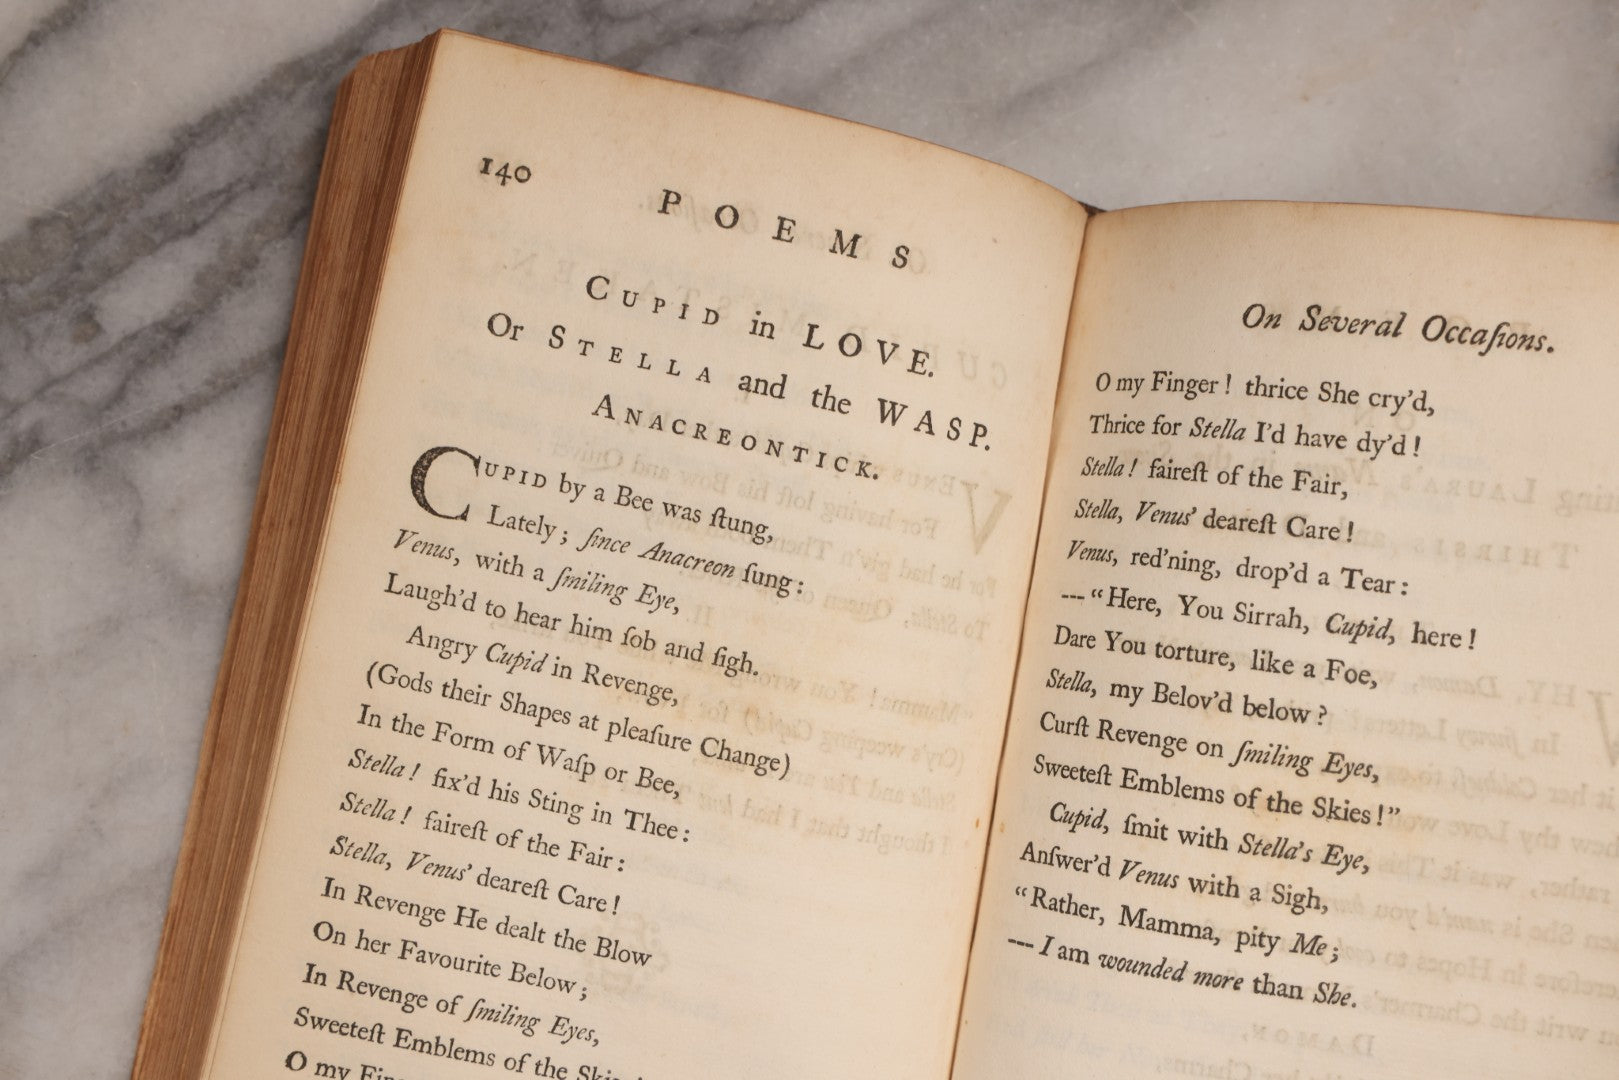 140
POEMS
CUPID in LOVE.
Or STELLA and the WASP.
ANACREONTICK.
CUPID by a Bee was ſtung,
Lately; ſince Anacreon ſung:
Venus, with a ſmiling Eye,
Laugh'd to hear him ſob and ſigh.
Angry Cupid in Revenge,
(Gods their Shapes at pleaſure Change)
In the Form of Waſp or Bee,
Stella! fix'd his Sting in Thee:
Stella! faireſt of the Fair:
Stella, Venus' deareſt Care!
In Revenge He dealt the Blow
On her Favourite Below;
In Revenge of ſmiling Eyes,
Sweeteſt Emblems of the
O my
On Several Occaſions.
O my Finger! thrice She cry'd,
Thrice for Stella I'd have dy'd!
Stella! faireſt of the Fair,
Stella, Venus' deareſt Care!
Venus, red'ning, drop'd a Tear:
--- “Here, You Sirrah, Cupid, here!
Dare You torture, like a Foe,
Stella, my Belov'd below?
Curſt Revenge on ſmiling Eyes,
Sweeteſt Emblems of the Skies!”
Cupid, ſmit with Stella's Eye,
Anſwer'd Venus with a Sigh,
“Rather, Mamma, pity Me;
--- I am wounded more than She.